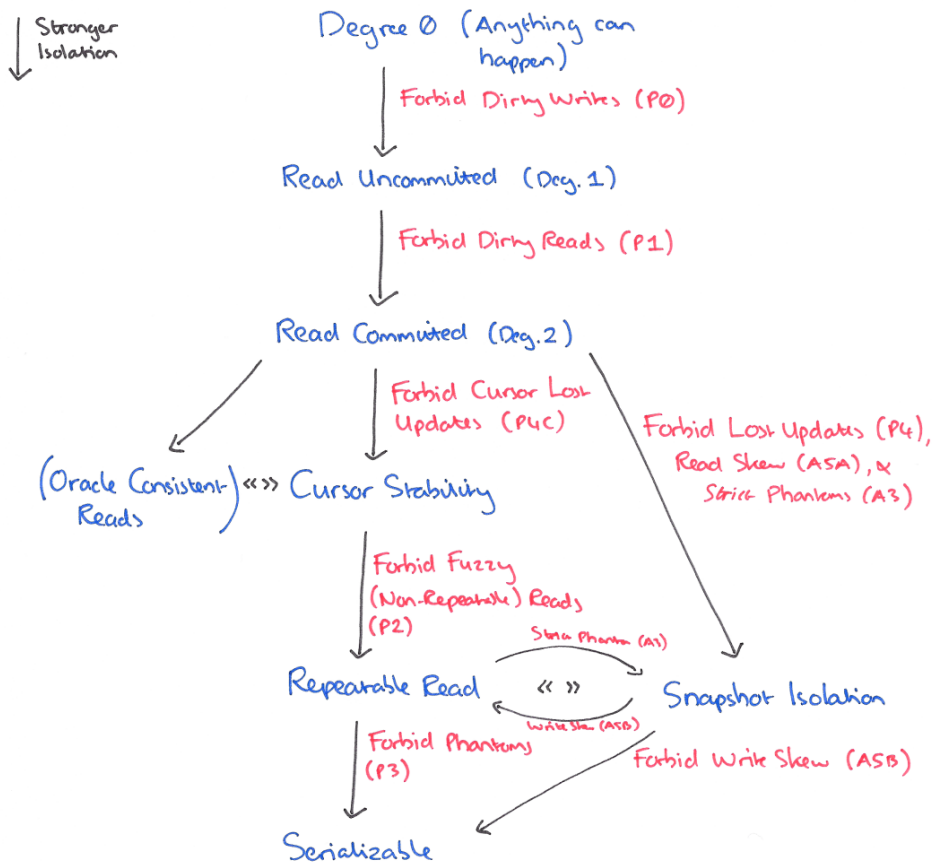 Stronger
Isolation
Degree 0 (Anything can
happen)
Forbid Dirty Writes (P0)
Read Uncommitted (Deg. 1)
Forbid Dirty Reads (P1)
Read Committed (Deg. 2)
Forbid Cursor Lost
Updates (P4C)
Forbid Lost Updates (P4),
Read Skew (A5A), &
Strict Phantoms (A3)
(Oracle Consistent
Reads)
«»
Cursor Stability
Forbid Fuzzy
(Non-Repeatable) Reads
(P2)
Strict Phantom (A3)
Repeatable Read
« »
Snapshot Isolation
Write Skew (A5B)
Forbid Phantoms
(P3)
Forbid Write Skew (A5B)
Serializable